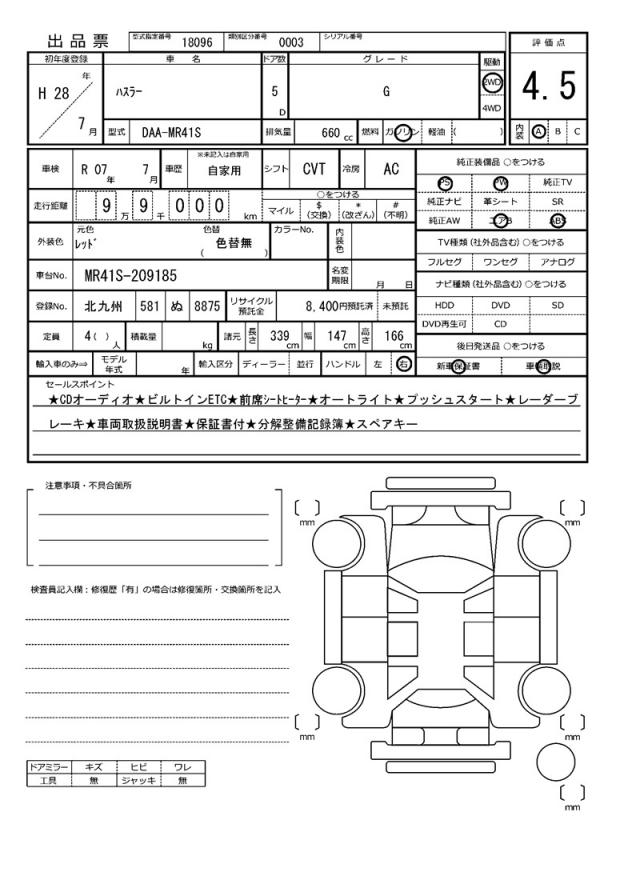 出品票 型式指定番号 18096 類別区分番号 0003 シリアル番号
初年度登録 車名 ドア数 グレード 駆動 評価点
H 28 年 7 月 ハスラー 5 D G 2WD 4WD 4.5
型式 DAA-MR41S 排気量 660 cc 燃料 ガソリン 軽油 ( ) 内装 A B C
車検 R 07 年 7 月 車歴 ※未記入は自家用 自家用 シフト CVT 冷房 AC
純正装備品 ○をつける
PS PW 純正TV
純正ナビ 革シート SR
純正AW エアB ABS
走行距離 9 万 9 千 0 0 0 km ○をつける
マイル $ (交換) * (改ざん) # (不明)
外装色 元色 レッド 色替 ( 色替無 ) カラーNo. 内装色
TV種類 (社外品含む) ○をつける
フルセグ ワンセグ アナログ
車台No. MR41S-209185 名変期限 月 日
ナビ種類 (社外品含む) ○をつける
HDD DVD SD
DVD再生可 CD
登録No. 北九州 581 ぬ 8875 リサイクル預託金 8,400円預託済 未預託
定員 4( ) 人 積載量 kg 諸元 長さ 339 cm 幅 147 cm 高さ 166 cm
後日発送品 ○をつける
新車保証書 車輌取説
輸入車のみ⇒ モデル年式 年 輸入区分 ディーラー 並行 ハンドル 左 右
セールスポイント
★CDオーディオ★ビルトインETC★前席シートヒーター★オートライト★プッシュスタート★レーダーブ
レーキ★車両取扱説明書★保証書付★分解整備記録簿★スペアキー
注意事項・不具合箇所
検査員記入欄：修復歴「有」の場合は修復箇所・交換箇所を記入
mm mm
mm mm
mm
ドアミラー キズ ヒビ ワレ
工具 無 ジャッキ 無